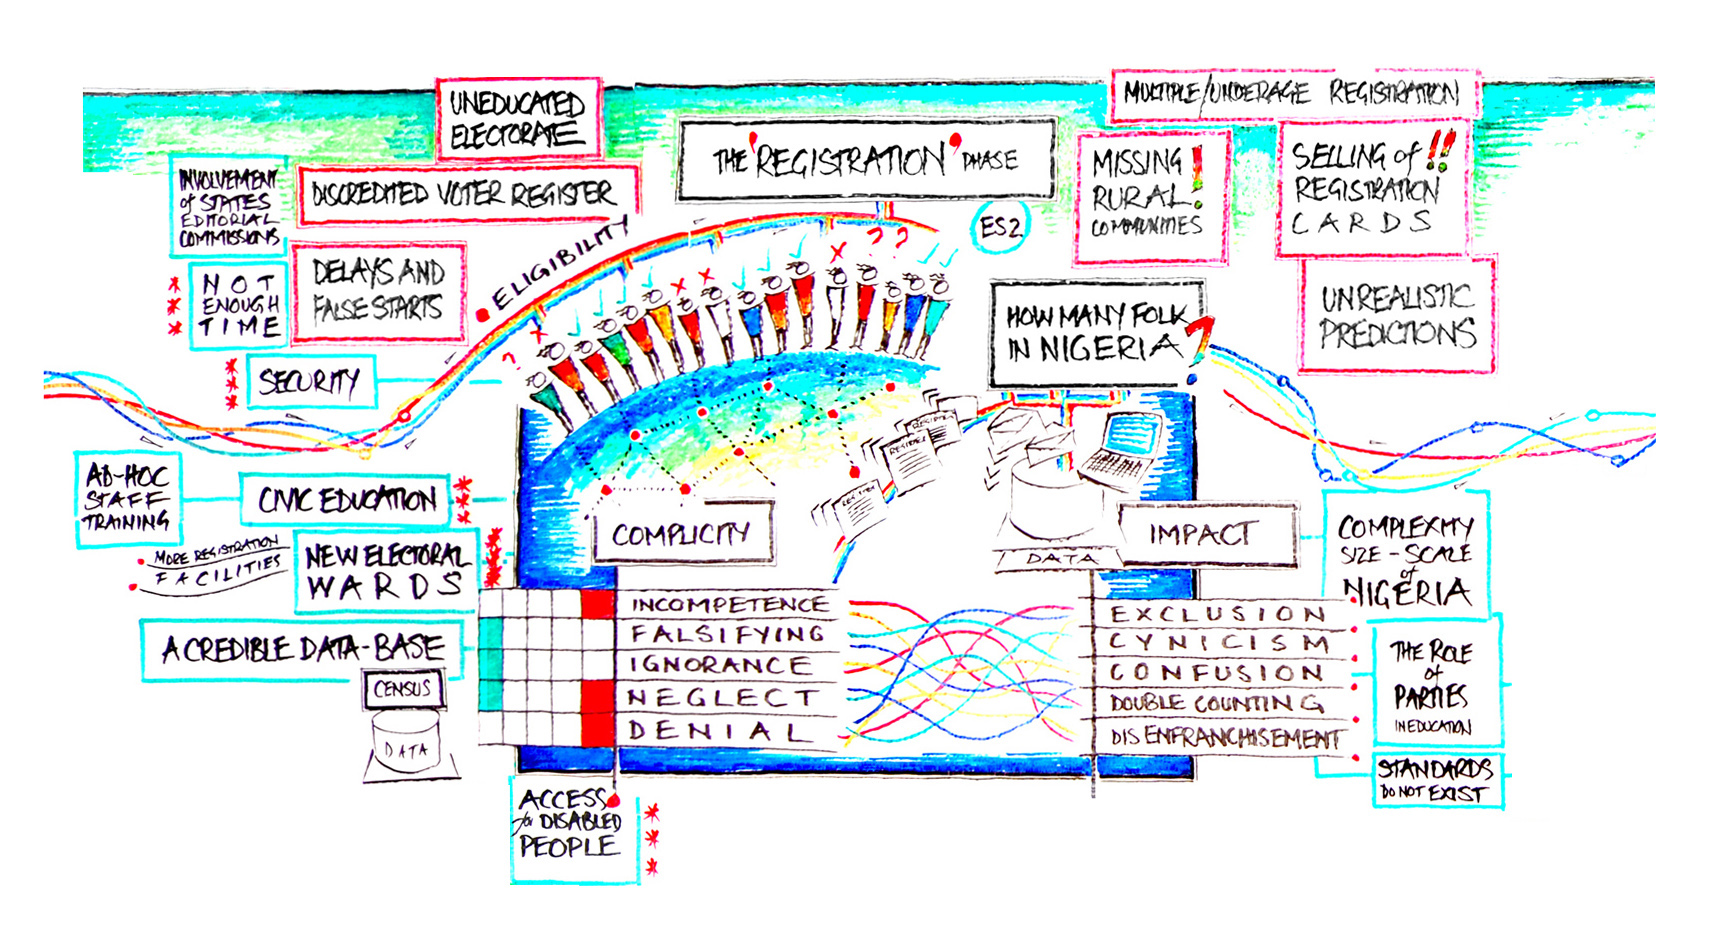 UNEDUCATED
ELECTORATE
MULTIPLE/UNDERAGE REGISTRATION
THE 'REGISTRATION' PHASE
INVOLVEMENT
of STATES
EDITORIAL
COMMISSIONS
DISCREDITED VOTER REGISTER
MISSING
RURAL!
COMMUNITIES
SELLING of !!
REGISTRATION
CARDS
ES2
ELIGIBILITY
NOT
ENOUGH
TIME
DELAYS AND
FALSE STARTS
HOW MANY FOLK
IN NIGERIA?
UNREALISTIC
PREDICTIONS
SECURITY
AD-HOC
STAFF
TRAINING
CIVIC EDUCATION
MORE REGISTRATION
FACILITIES
NEW ELECTORAL
WARDS
A CREDIBLE DATA-BASE
CENSUS
DATA
COMPLICITY
REGISTER
REGISTER
REGISTER
DATA
IMPACT
COMPLEXITY
SIZE - SCALE
of
NIGERIA
INCOMPETENCE
FALSIFYING
IGNORANCE
NEGLECT
DENIAL
EXCLUSION
CYNICISM
CONFUSION
DOUBLE COUNTING
DISENFRANCHISEMENT
THE ROLE
of
PARTIES
IN EDUCATION
STANDARDS
DO NOT EXIST
ACCESS
for DISABLED
PEOPLE